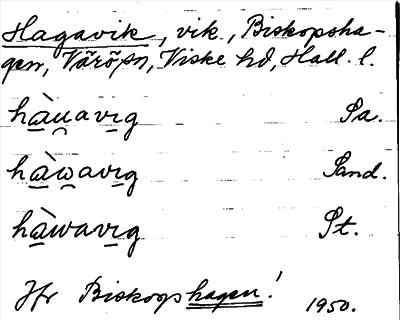 Hagavik, vik, Biskopsha-
gen, Värö sn, Viske hd, Hall. l.
hàu̯avig Pa.
hàw̯avig Sand.
hàwavig St.
Jfr Biskopshagen! 1950.